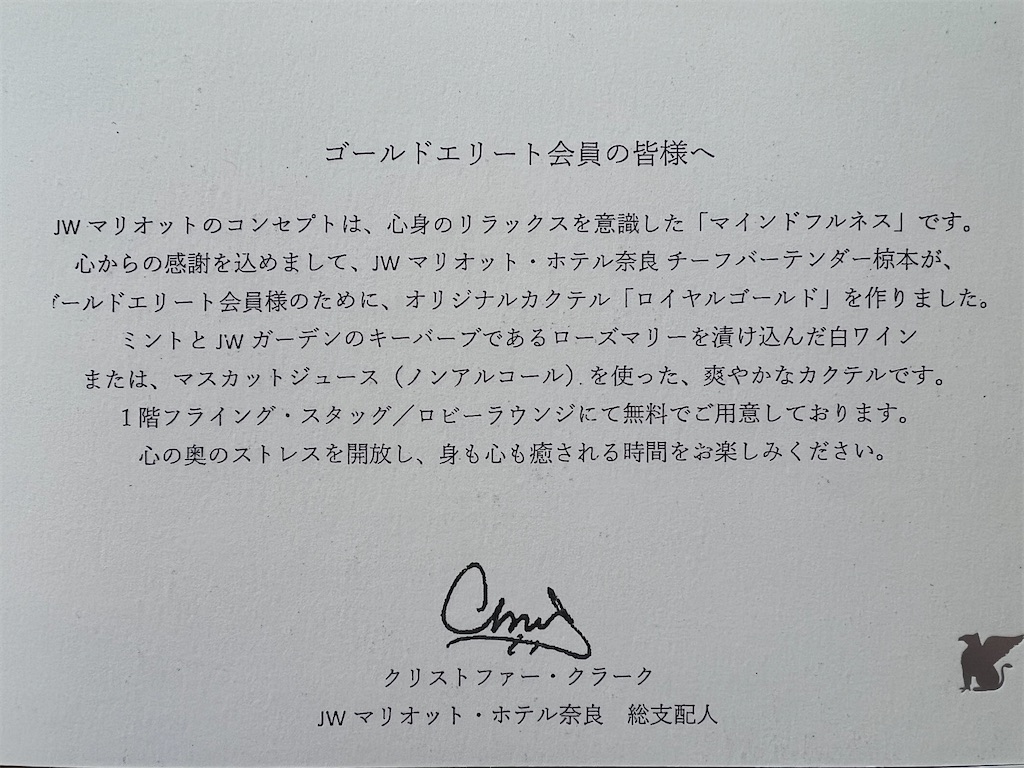 ゴールドエリート会員の皆様へ
JW マリオットのコンセプトは、心身のリラックスを意識した「マインドフルネス」です。
心からの感謝を込めまして、JW マリオット・ホテル奈良 チーフバーテンダー椋本が、
ゴールドエリート会員様のために、オリジナルカクテル「ロイヤルゴールド」を作りました。
ミントと JW ガーデンのキーバーブであるローズマリーを漬け込んだ白ワイン
または、マスカットジュース（ノンアルコール）を使った、爽やかなカクテルです。
1 階フライング・スタッグ／ロビーラウンジにて無料でご用意しております。
心の奥のストレスを開放し、身も心も癒される時間をお楽しみください。
クリストファー・クラーク
JW マリオット・ホテル奈良　総支配人